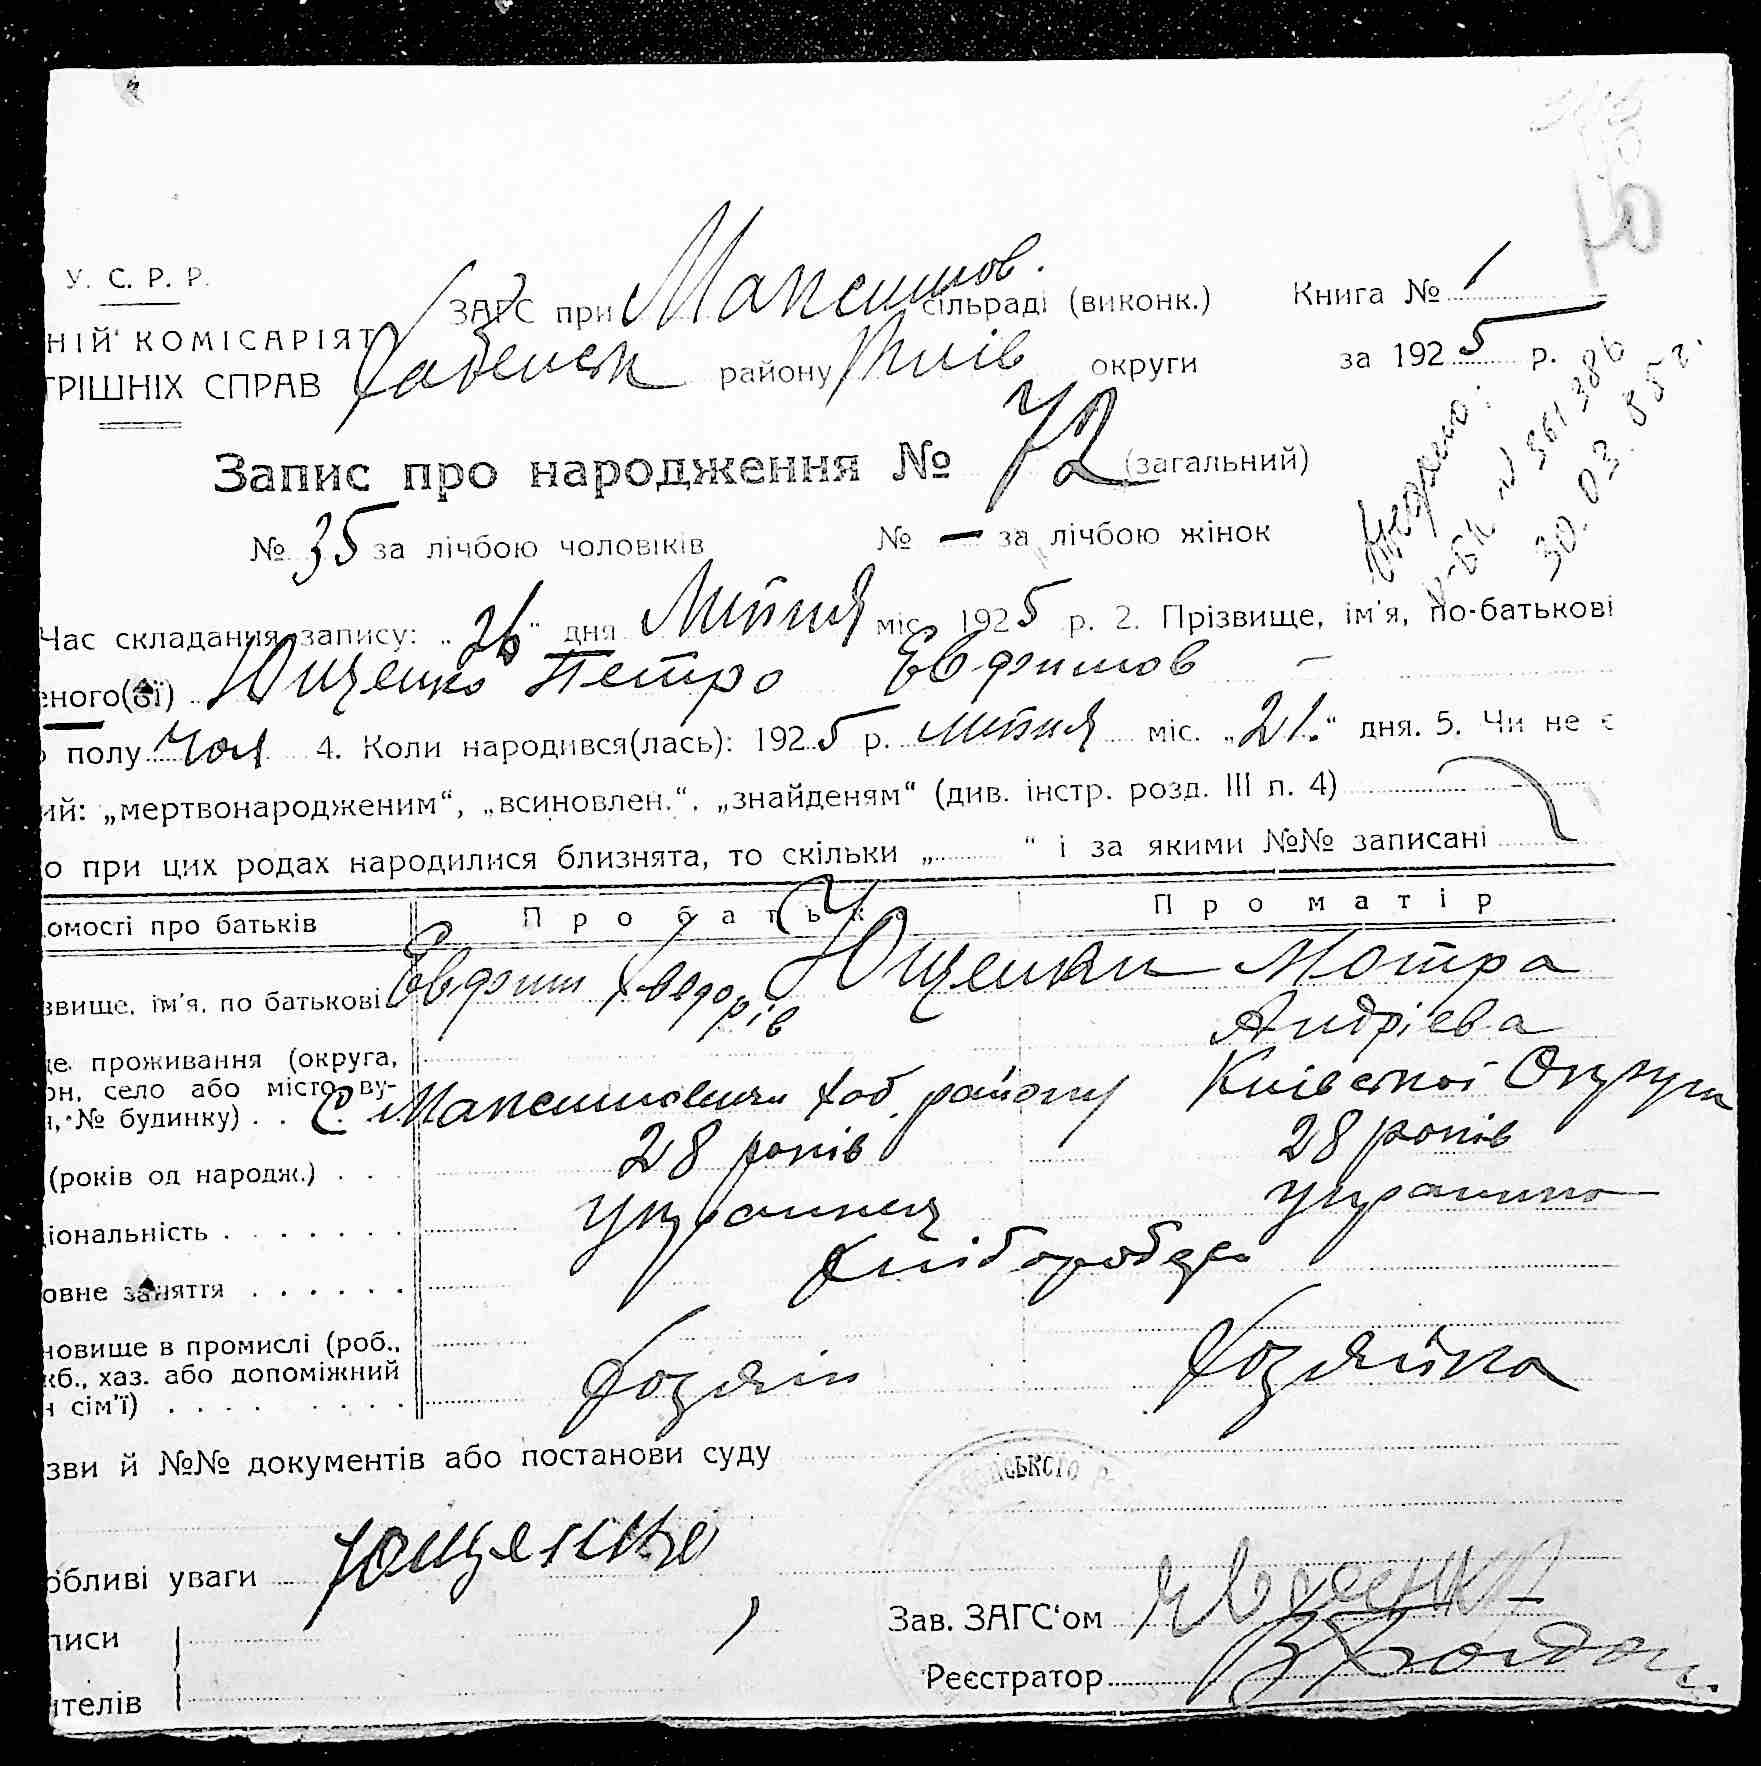 У. С. Р. Р.
ЗАГС при Максимов. сільраді (виконк.) Книга № 1
НІЙ КОМІСАРІЯТ
ТРІШНІХ СПРАВ Хабенськ району Київ округи за 1925 р.
Запис про народження № 72 (загальний)
№ 35 за лічбою чоловіків № — за лічбою жінок
30.03.85 г.
Час складання запису: „26“ дня Липня міс. 1925 р. 2. Прізвище, ім'я, по-батькові
еного(ої) Ющенко Петро Евфимов —
полу Чол 4. Коли народився(лась): 1925 р. Липня міс. „21.“ дня. 5. Чи не є
ий: „мертвонародженим“, „всиновлен.“, „знайденям“ (див. інстр. розд. III п. 4)
о при цих родах народилися близнята, то скільки „ “ і за якими №№ записані
омості про батьків Про батька Про матір
звище, ім'я, по батькові Евфим Хведорів Ющенки Мотра
Андрієва
це проживання (округа,
он, село або місто, ву-
, № будинку) . . С. Максимовичи Хаб. району Київської Округи
(років од народж.) . . 28 років 28 років
іональність . . . . . . . українець українка
овне заняття . . . . . . Хлібороби
новище в промислі (роб.,
жб., хаз. або допоміжний
н сім'ї) . . . . . . . . . Хозяїн Хозяйка
зви й №№ документів або постанови суду
обливі уваги Ющенко
Зав. ЗАГС'ом
писи
Реєстратор
ителів